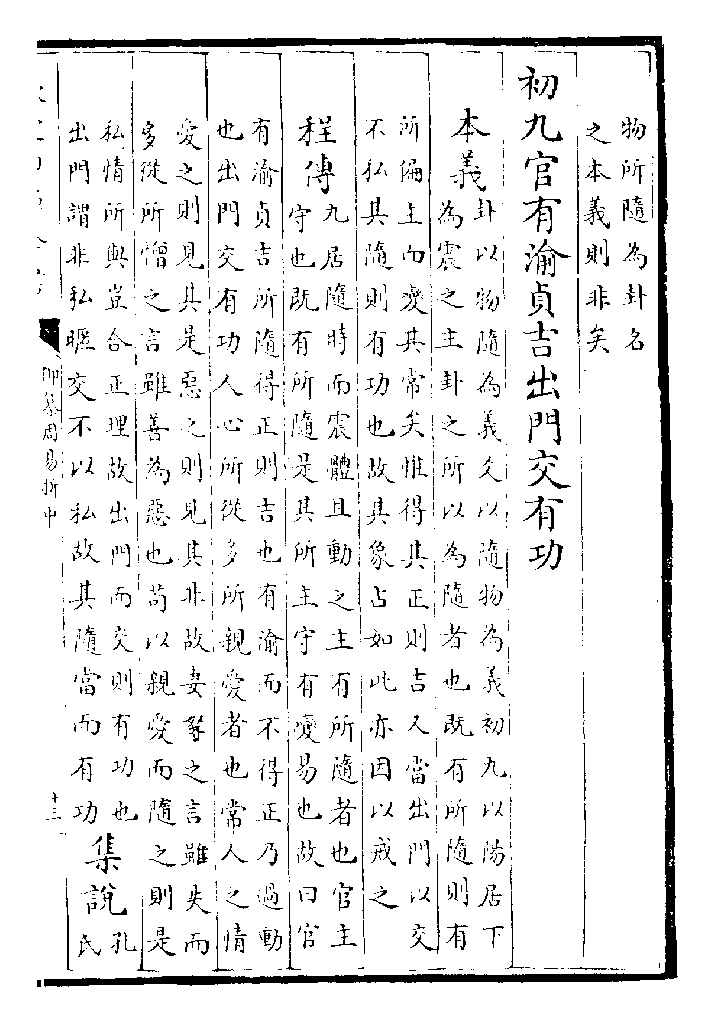 物所隨為卦名
之本義則非矣
初九官有渝貞吉出門交有功
本義
卦以物隨為義爻以隨物為義初九以陽居下
為震之主卦之所以為隨者也既有所隨則有
所偏主而變其常矣惟得其正則吉又當出門以交
不私其隨則有功也故其象占如此亦因以戒之
程傳
九居隨時而震體且動之主有所隨者也官主
守也既有所隨是其所主守有變易也故曰官
有渝貞吉所隨得正則吉也有渝而不得正乃過動
也出門交有功人心所從多所親愛者也常人之情
愛之則見其是惡之則見其非故妻孥之言雖失而
多從所憎之言雖善為惡也苟以親愛而隨之則是
私情所與豈合正理故出門而交則有功也
出門謂非私暱交不以私故其隨當而有功
集說
孔
氏
御纂周易折中
十三